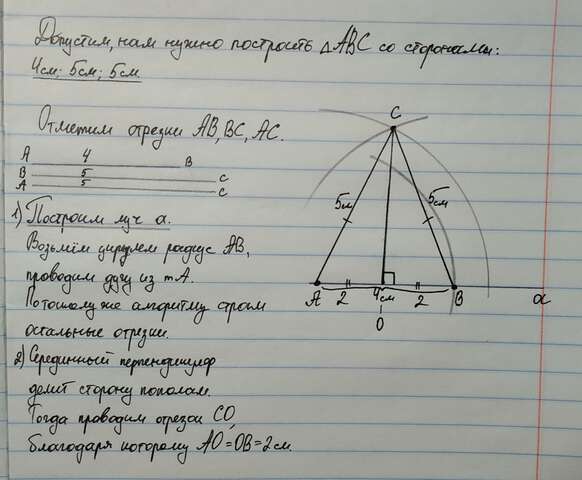 Допустим, нам нужно построить △ABC со сторонами:
4см; 5см; 5см.
Отметим отрезки AB, BC, AC.
A 4 B
B 5 C
A 5 C
1) Построим луч a.
Возьмём циркулем радиус AB,
проводим дугу из т A.
По такому же алгоритму строим
остальные отрезки.
2) Серединный перпендикуляр
делит сторону пополам.
Тогда проводим отрезок CO,
благодаря которому AO=OB=2см.
C
5см 5см
A 2 4см 2 B a
O